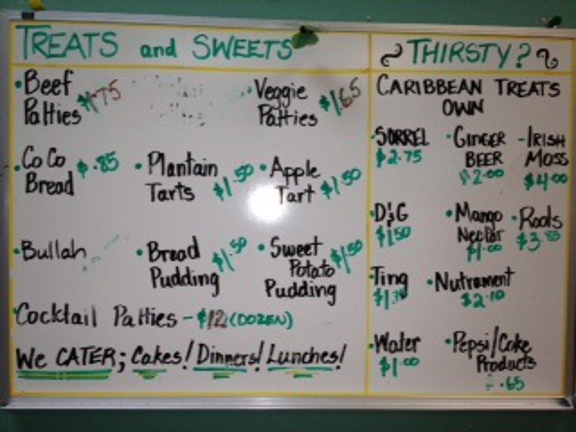 TREATS and SWEETS
• Beef Patties $1.75
• Veggie Patties $1.65
• CoCo Bread $.85
• Plantain Tarts $1.50
• Apple Tart $1.50
• Bullah
• Bread Pudding $1.50
• Sweet Potato Pudding $1.50
Cocktail Patties - $12 (DOZEN)
WE CATER; Cakes! Dinners! Lunches!
THIRSTY?
CARIBBEAN TREATS
OWN
• SORREL $2.75
• GINGER BEER $2.00
- IRISH MOSS $4.00
• D&G $1.50
• Mango Nectar $1.00
• Roots
• Ting
• Nutrament $2.10
• Water $1.00
• Pepsi/Coke Products .65